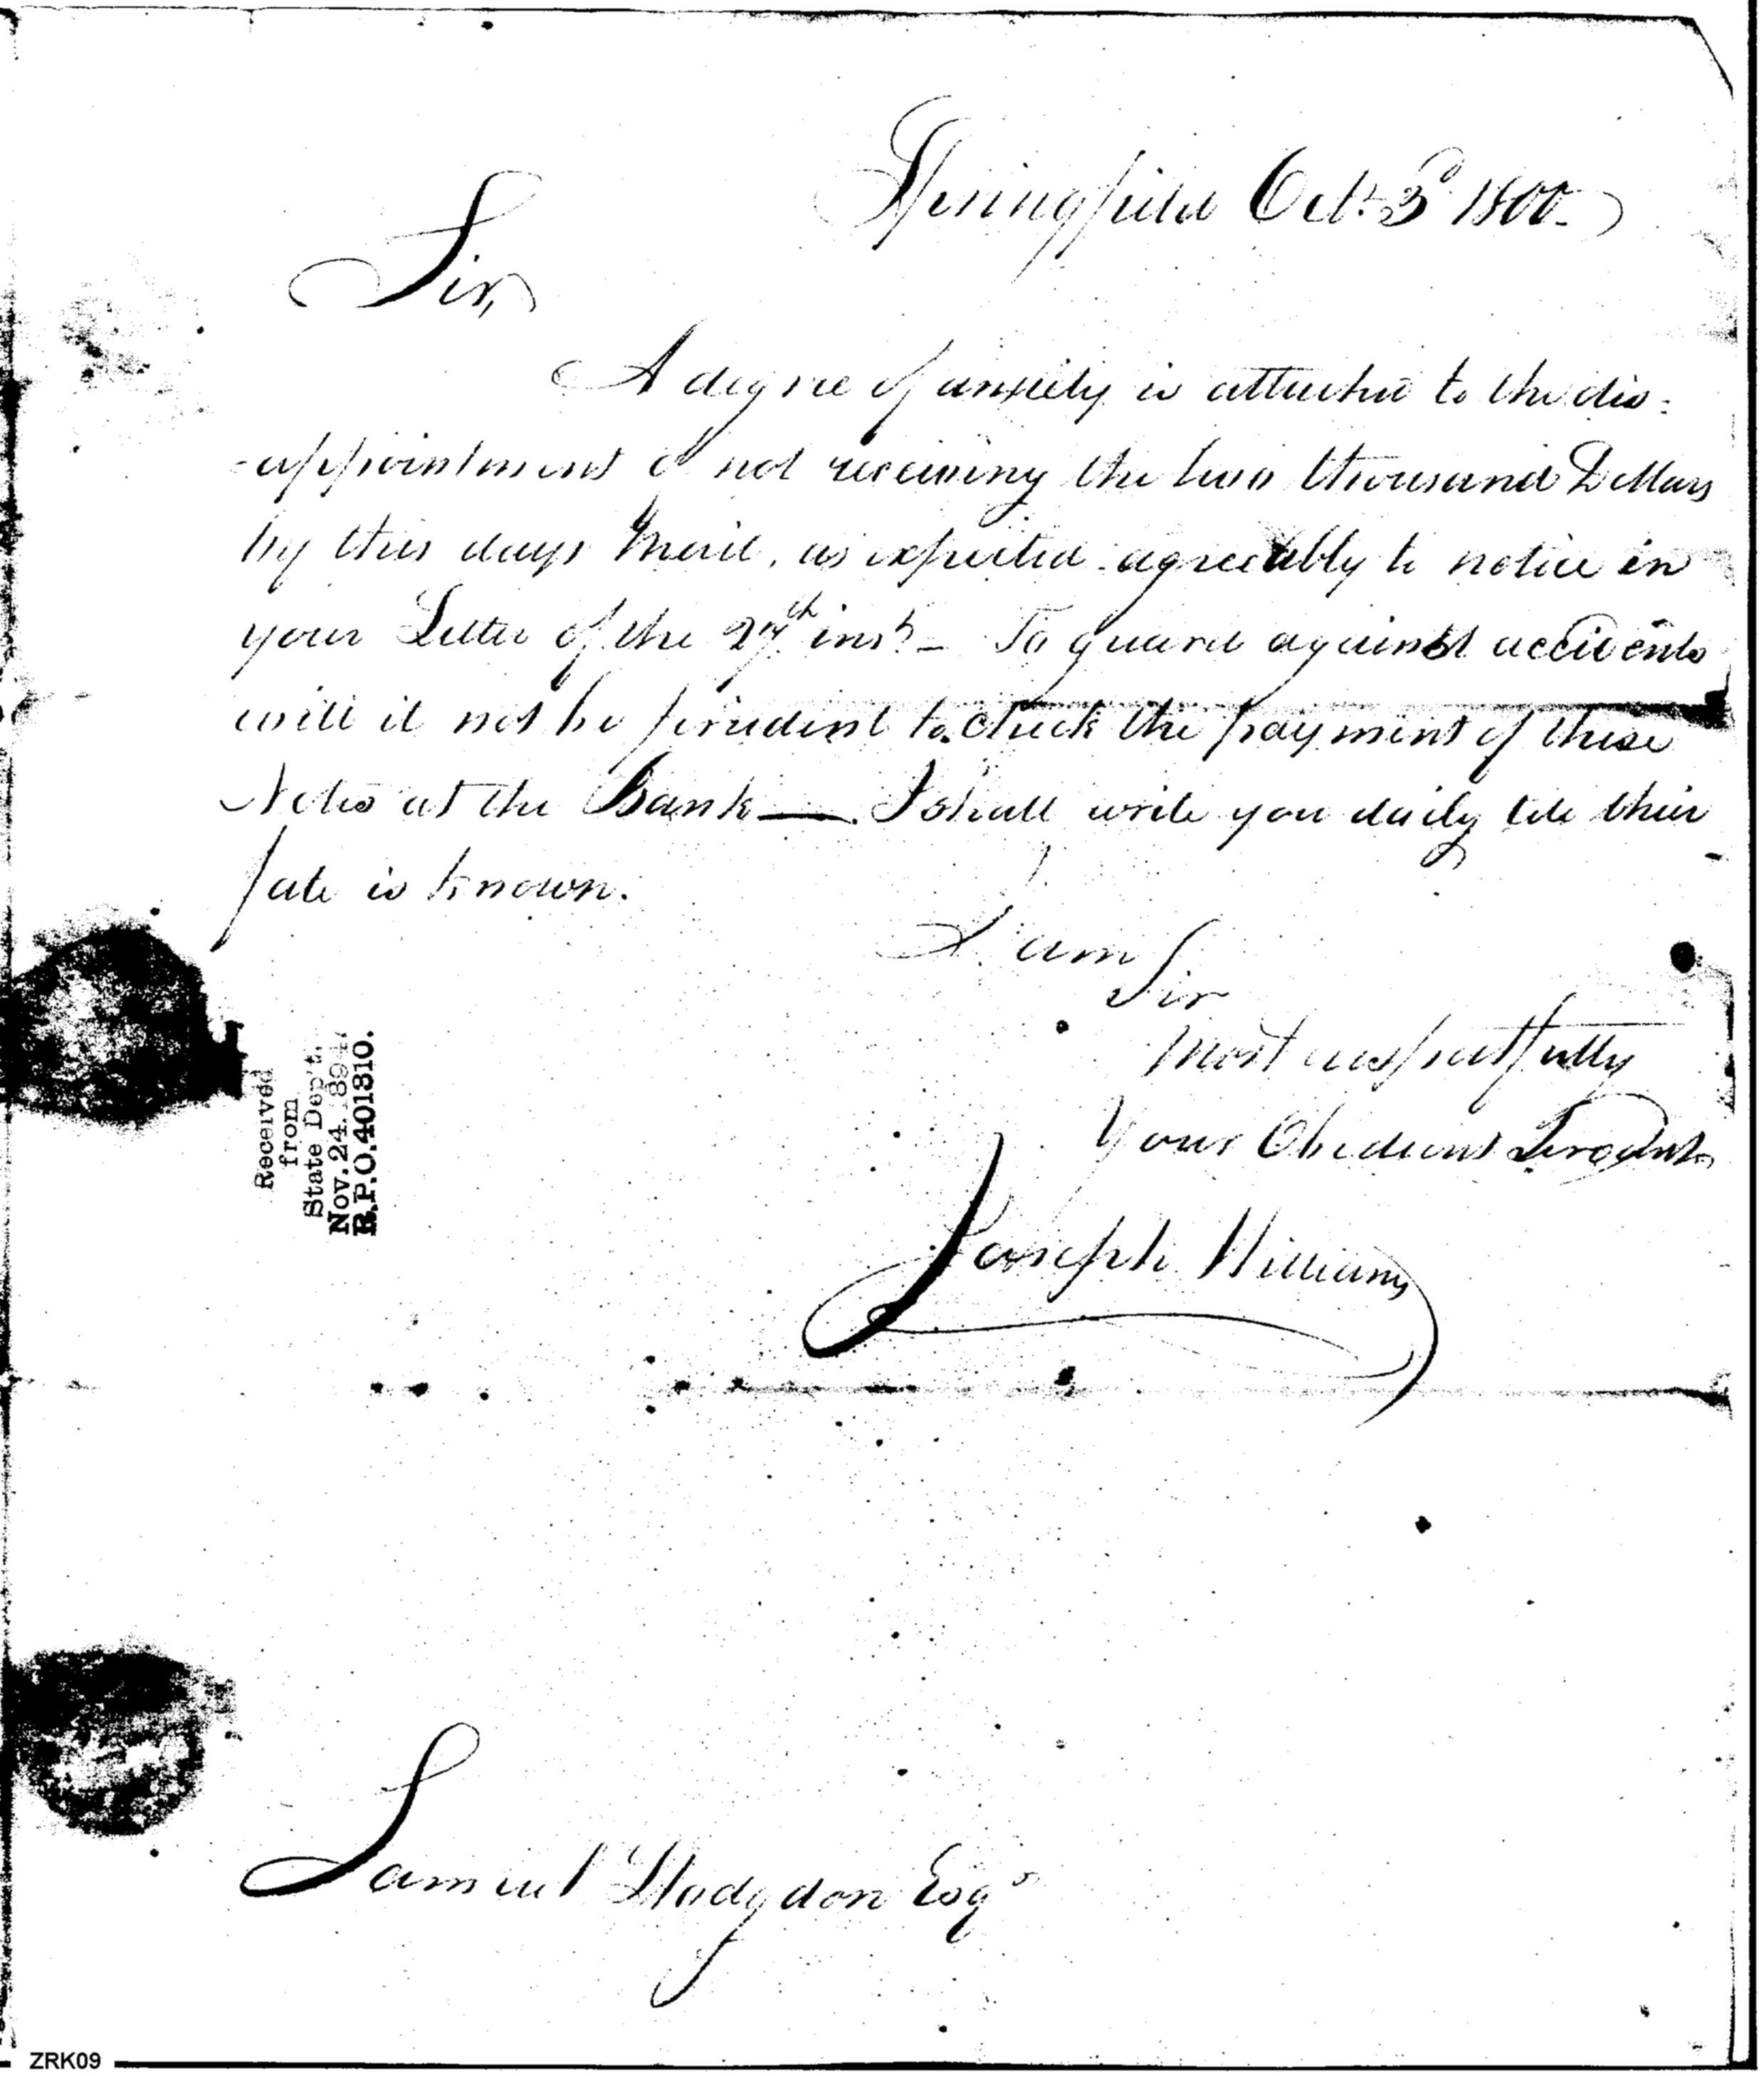 Springfield Oct. 3d 1800.
Sir,
A degree of anxiety is attached to the dis=
-appointment of not receiving the two thousand Dollars
by this days Mail, as expected agreeably to notice in
your Letter of the 27th inst. – To guard against accidents
will it not be prudent to check the payment of these
Notes at the Bank —. I shall write you daily till their
fate is known.
I am
Sir
Most respectfully
Your Obedient Servant
Joseph Williams
Received
from
State Dep't.
Nov. 24. 1894
R.P.O. 401810.
Samuel Hodgdon Esqr
ZRK09